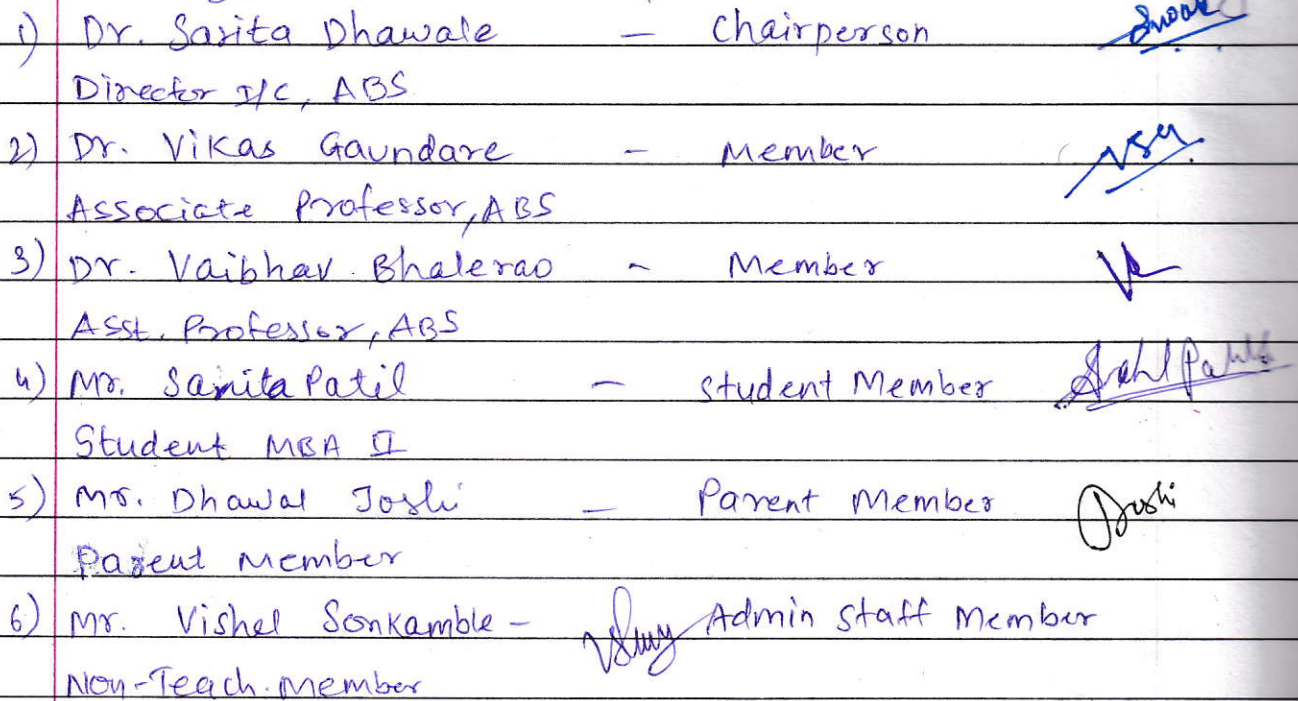 1) Dr. Sarita Dhawale - Chairperson
Director I/C, ABS
2) Dr. Vikas Gaundare - Member
Associate Professor, ABS
3) Dr. Vaibhav Bhalerao - Member
Asst. Professor, ABS
4) Mr. Sanita Patil - Student Member
Student MBA II
5) Mr. Dhawal Joshi - Parent Member Joshi
Parent Member
6) Mr. Vishal Sonkamble - Admin Staff Member
Non-Teach. Member